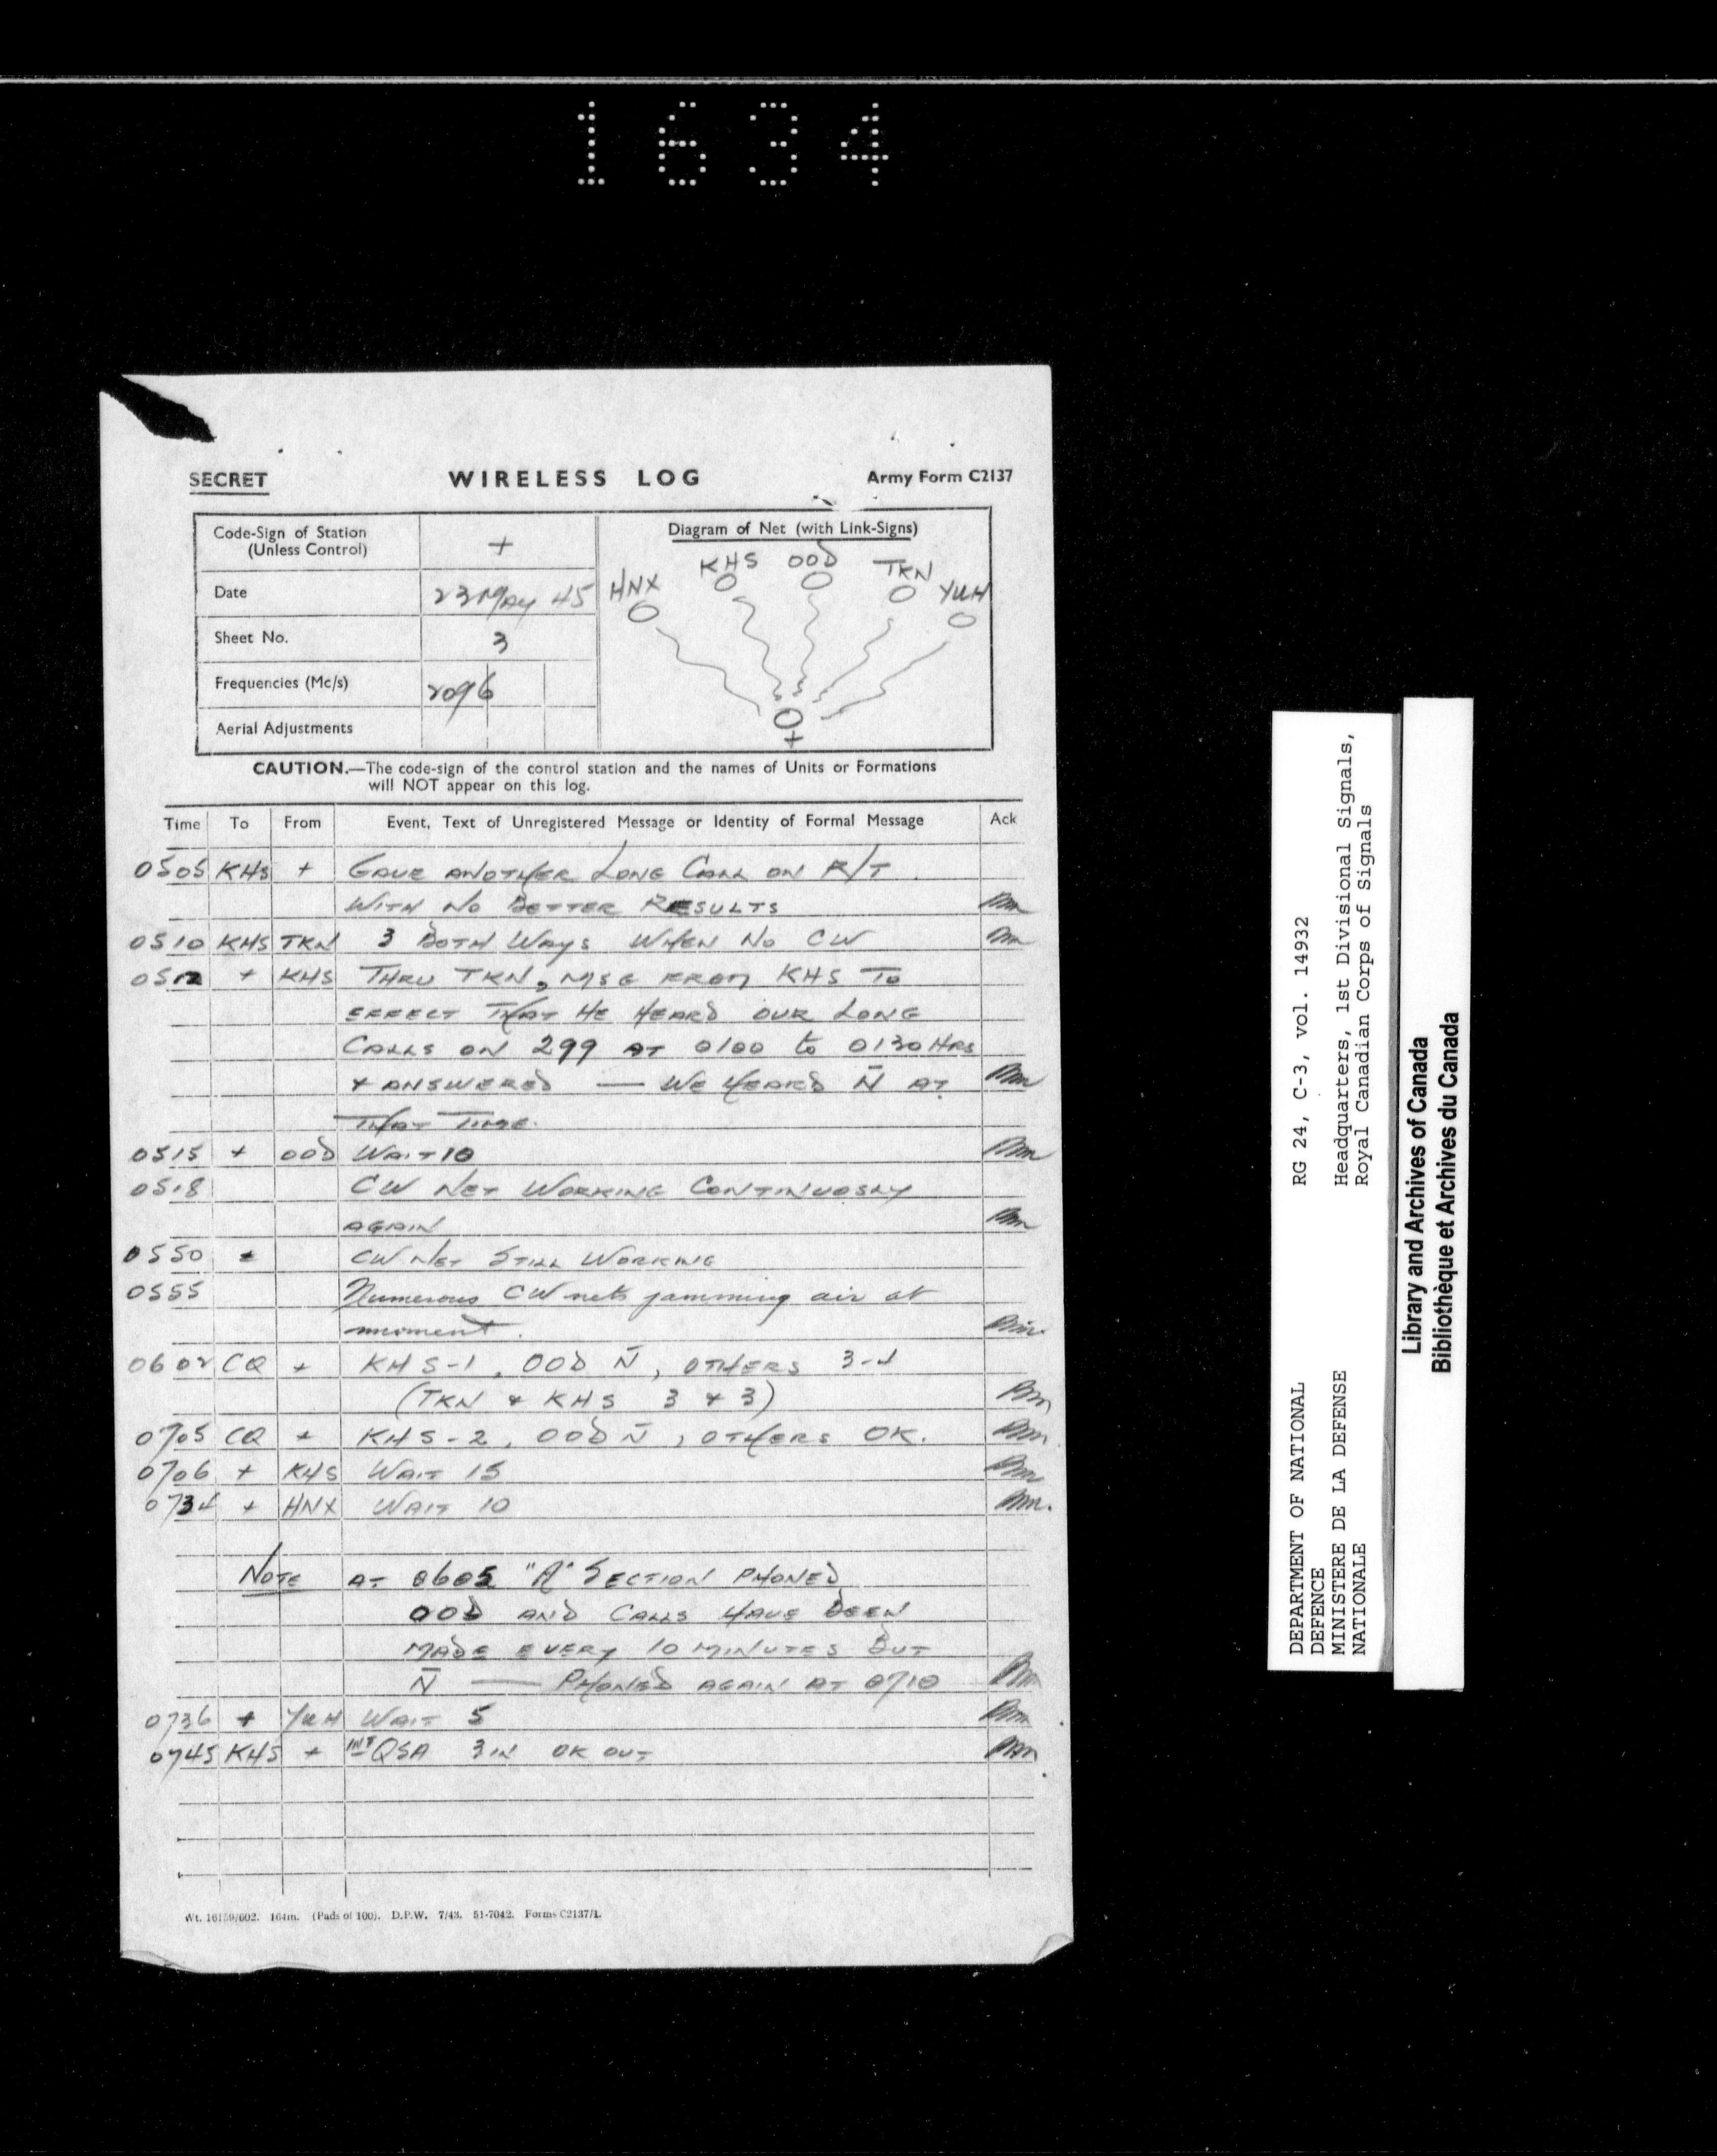 1634
SECRET WIRELESS LOG Army Form C2137
Code-Sign of Station
(Unless Control) +
Date 23 May 45
Sheet No. 3
Frequencies (Mc/s) 2096
Aerial Adjustments
Diagram of Net (with Link-Signs)
HNX KHS OOD TKN YUH
+
CAUTION.—The code-sign of the control station and the names of Units or Formations
will NOT appear on this log.
Time To From Event, Text of Unregistered Message or Identity of Formal Message Ack
0505 KHS + GAVE ANOTHER LONG CALL ON R/T
WITH NO BETTER RESULTS
0510 KHS TKN 3 BOTH WAYS WHEN NO CW
0512 + KHS THRU TKN, MSG FROM KHS TO
EFFECT THAT HE HEARD OUR LONG
CALLS ON 299 AT 0100 to 0130 HRS
+ ANSWERED — WE HEARD N̄ AT
THAT TIME.
0515 + OOD WAIT 10
0518 CW NET WORKING CONTINUOSLY
AGAIN
0550 CW NET STILL WORKING
0555 Numerous CW nets jamming air at
moment.
0602 CQ + KHS-1, OOD N̄, OTHERS 3-4
(TKN + KHS 3 + 3)
0705 CQ + KHS-2, OOD N̄, OTHERS OK.
0706 + KHS WAIT 15
0734 + HNX WAIT 10
NOTE AT 0605 "A" SECTION PHONED
OOD AND CALLS HAVE BEEN
MADE EVERY 10 MINUTES BUT
N̄ — PHONED AGAIN AT 0710
0736 + YUH WAIT 5
0745 KHS + INT QSA 3 IN OK OUT
Wt. 16159/602. 164m. (Pads of 100). D.P.W. 7/43. 51-7042. Forms C2137/1.
DEPARTMENT OF NATIONAL
DEFENCE
MINISTERE DE LA DEFENSE
NATIONALE
RG 24, C-3, vol. 14932
Headquarters, 1st Divisional Signals,
Royal Canadian Corps of Signals
Library and Archives of Canada
Bibliothèque et Archives du Canada